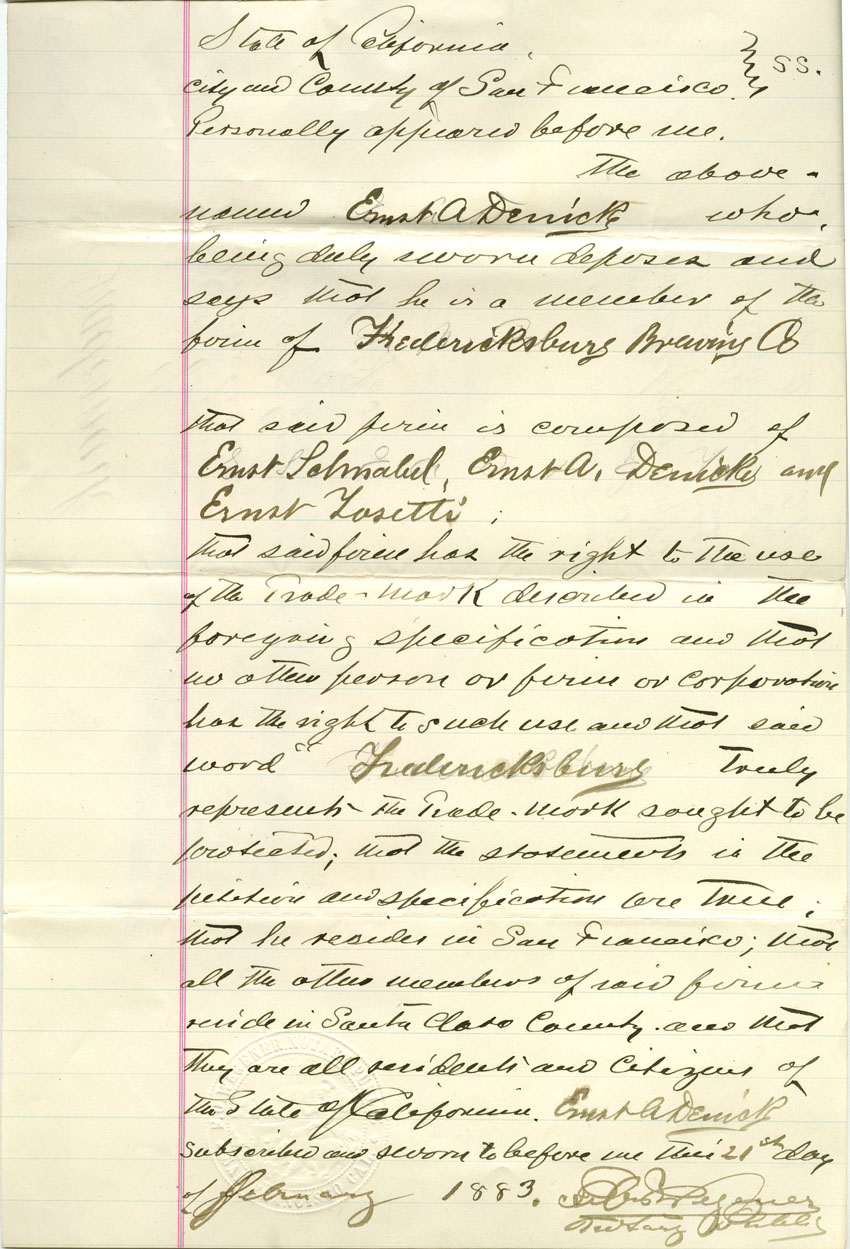 State of California,
SS.
city and County of San Francisco.
Personally appeared before me.
The above-
named Ernst A Denicke who,
being duly sworn deposes and
says that he is a member of the
firm of Fredericksburg Brewing Co
that said firm is composed of
Ernst Schnabel, Ernst A. Denicke and
Ernst Tosetti;
that said firm has the right to the use
of the Trade-Mark described in the
foregoing specification and that
no other person or firm or corporation
has the right to such use and that said
word "Fredericksburg truly
represents the Trade-Mark sought to be
protected; that the statements in the
petition and specification are true;
that he resides in San Francisco; that
all the other members of said firm
reside in Santa Clara County. and that
they are all residents and Citizens of
the State of California. Ernst A Denicke
Subscribed and sworn to before me this 21st day
of February 1883.
Notary Public